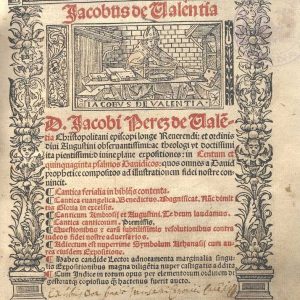 Jacobus de Valentia
IACOBVS DE VALENTIA
D. Jacobi Perez de Vale-
tia Christopolitani episcopi longe Reverendi: et ordinis
divi Augustini observantissimi: ac theologi
vt doctissimi
ita pientissimi: divine plane expositiones: in Centum et
quinquaginta psalmos Davidicos: quos omnes a David
prophetice compositos ad illustrationem fidei nostre con-
vincit.
Cantica ferialia in bibliis contenta.
Cantica evangelica, Benedictus, Magnificat, Nunc dimit-
tis Gloria in excelsis.
Canticum Ambrosii et Augustini, Te deum laudamus.
Cantica canticorum,
Questionibus
contra
iudeos fidei nostre adversarios.
Adiectum est nuperrime Symbolum Athanasii, cum au-
rea eiusdem Expositione.
Habes candide Lector adnotamenta marginalia singu-
lis Expositionibus magna diligentia nuper castigatis addita
Cum Indice in totum opus per elementorum ordinem di-
gestum copiosius
hactenus fuerit auctus.